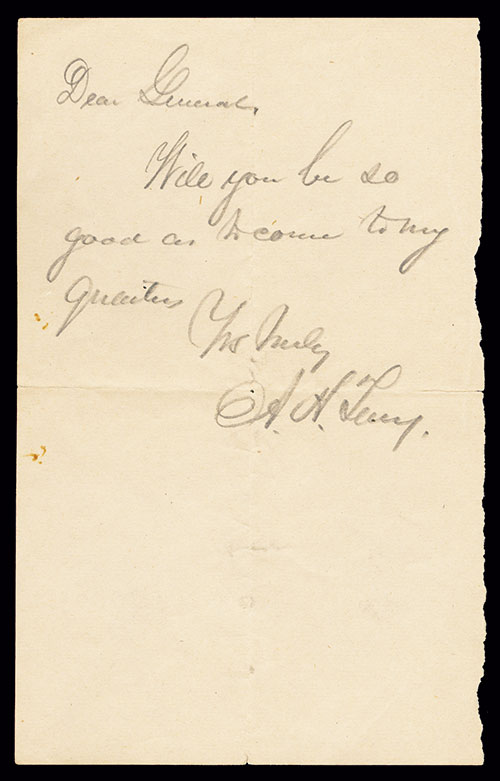 Dear General,
Will you be so
good as to come to my
quarters
Yrs. truly
A. H. Terry.